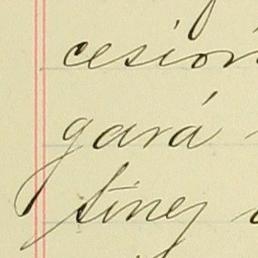 cesión
gará
tinez